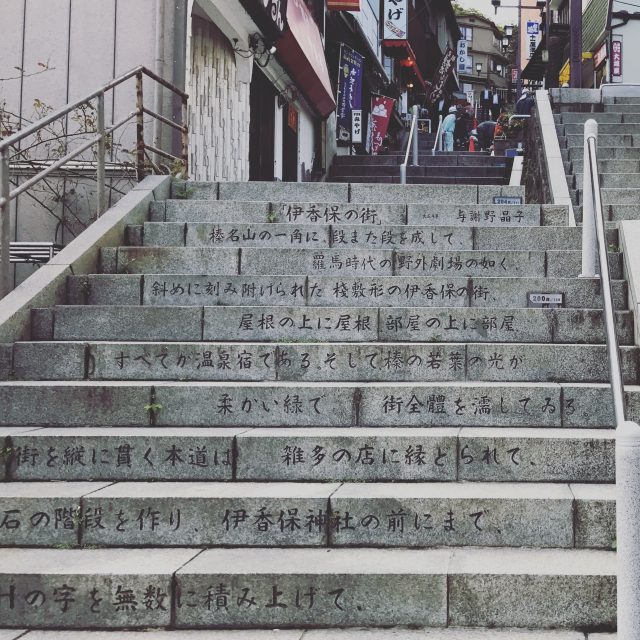 みやげ
伊香保の街、 与謝野晶子
榛名山の一角に、段また段を成して、
羅馬時代の野外劇場の如く、
斜めに刻み附けられた 桟敷形の伊香保の街、
屋根の上に屋根、部屋の上に部屋、
すべてが温泉宿である。そして榛の若葉の光が
柔かい緑で 街全體を濡してゐる。
街を縦に貫く本道は 雑多の店に縁どられて、
石の階段を作り、伊香保神社の前にまで、
Hの字を無数に積み上げて、